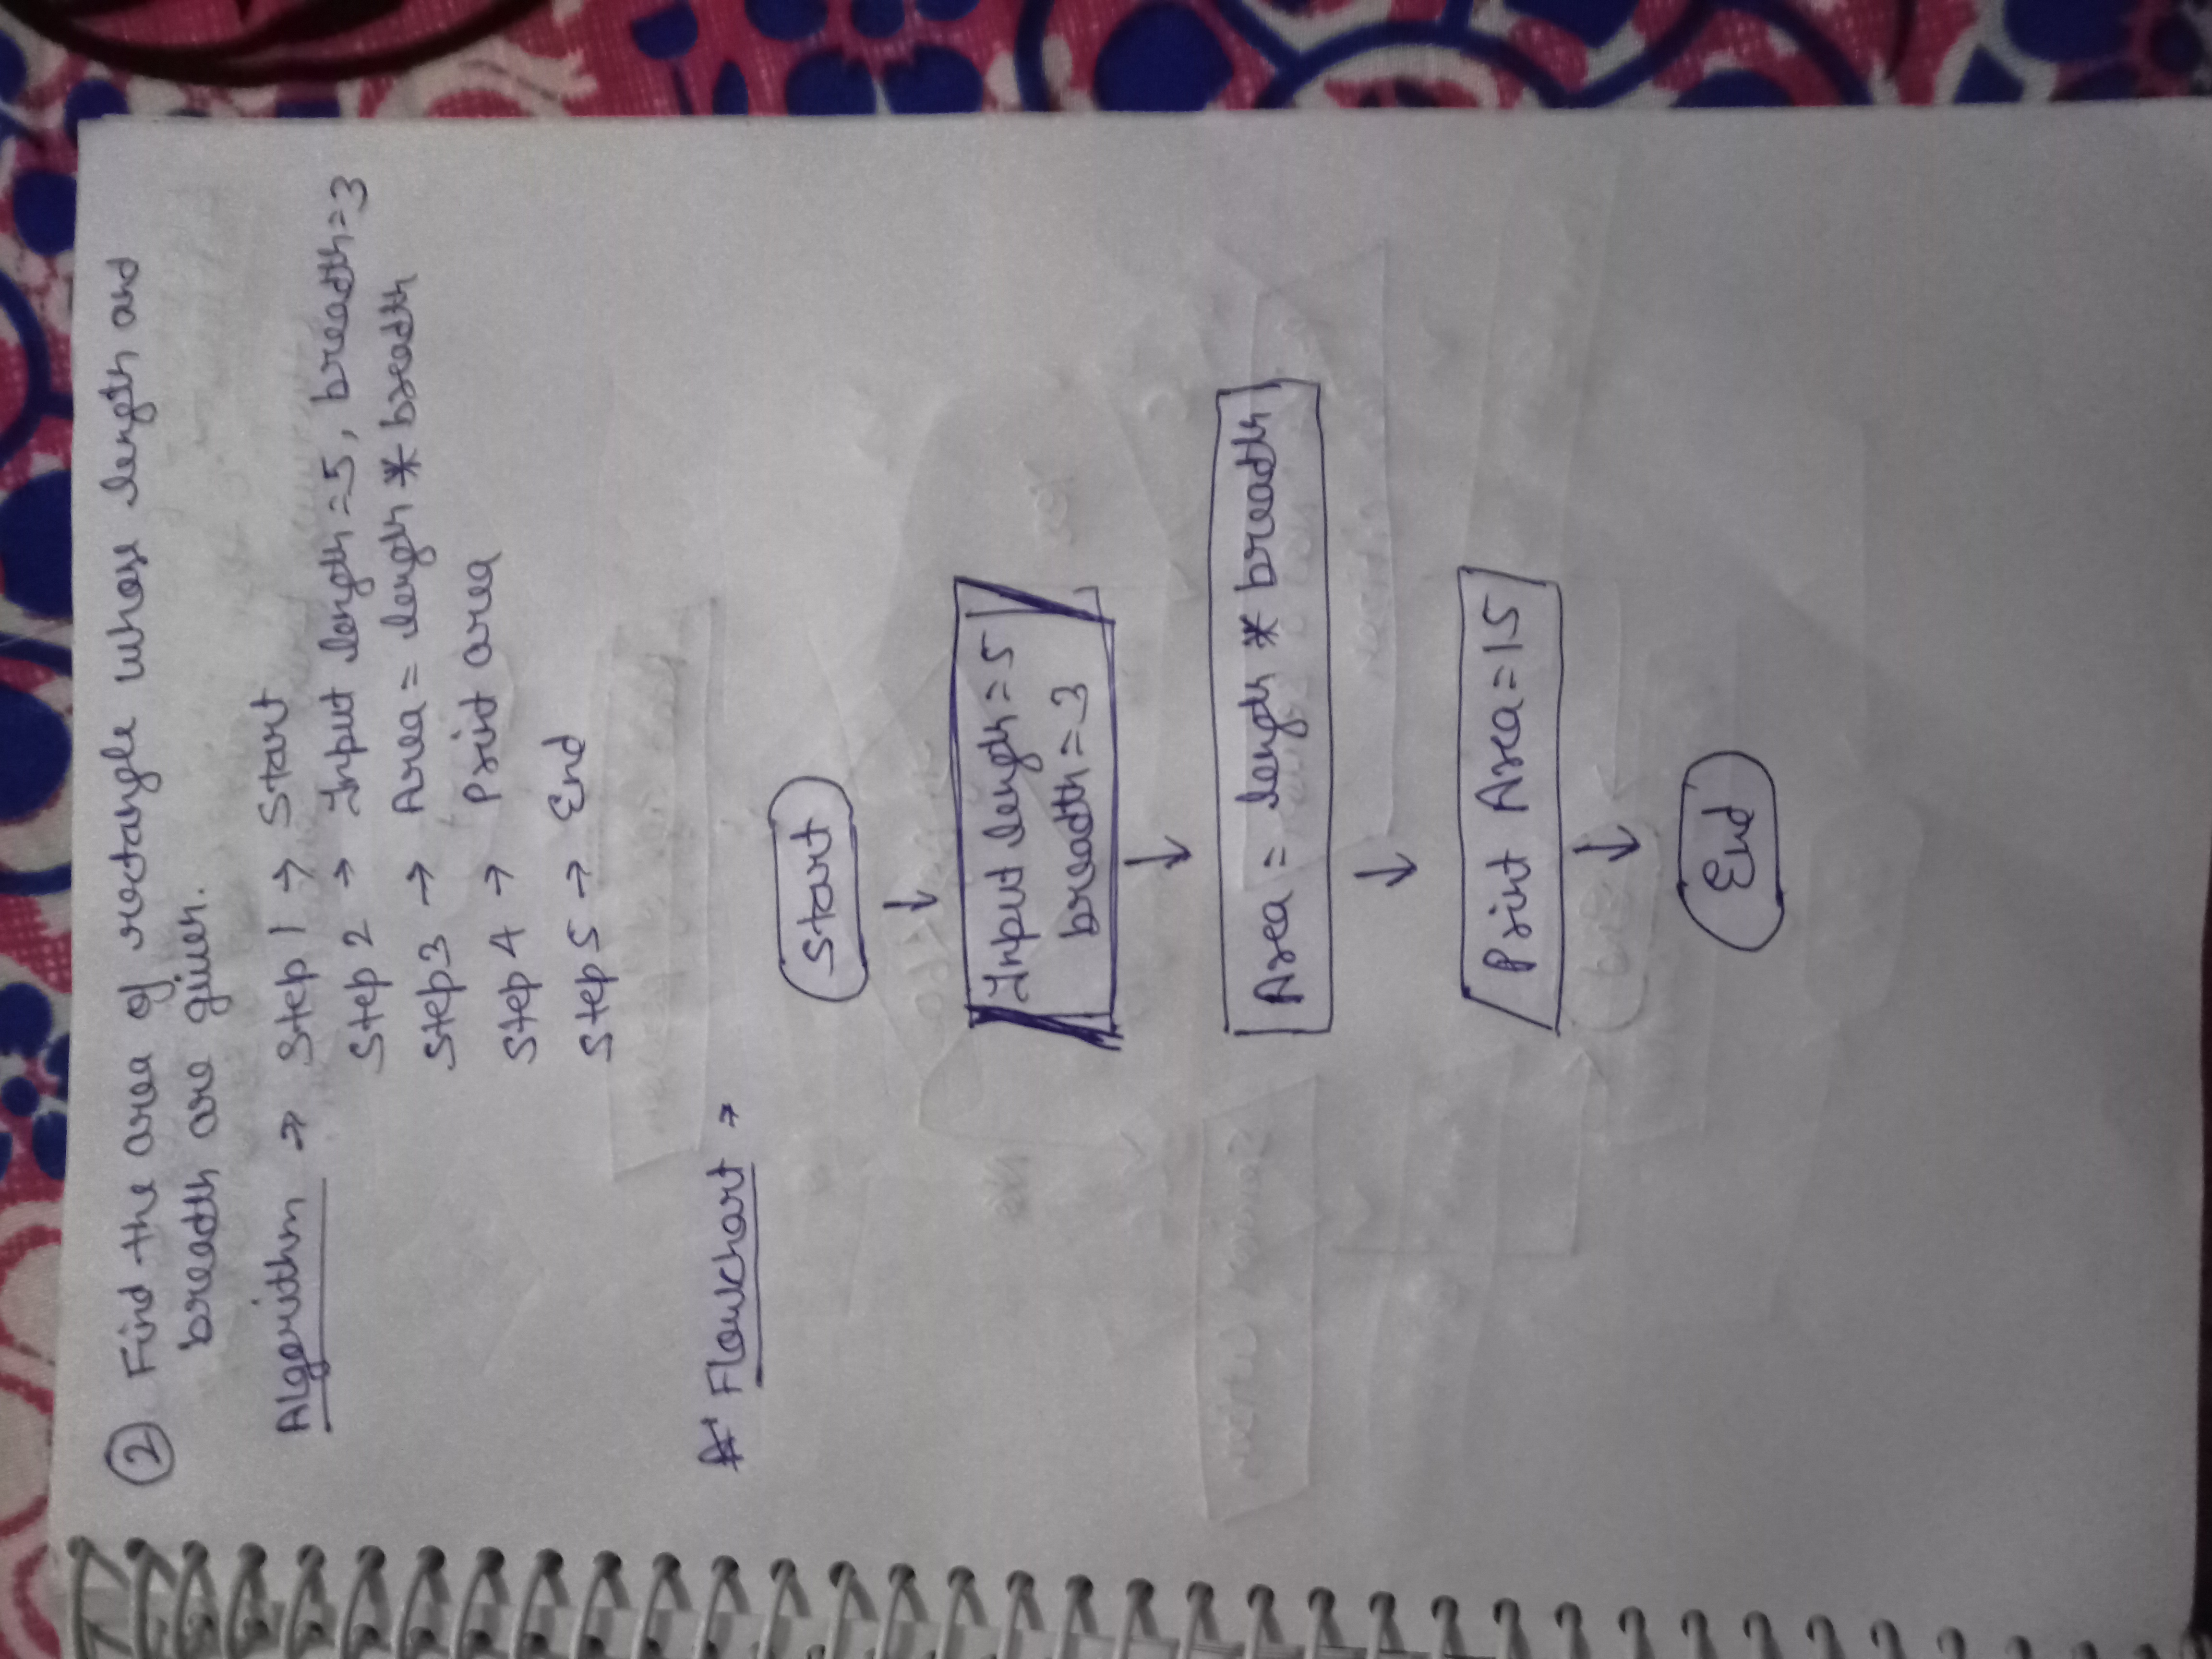 ② Find the area of rectangle whose length and
breadth are given.
Algorithm → Step 1 → Start
Step 2 → Input length=5, breadth=3
Step3 → Area = length * breadth
Step 4 → Print area
Step 5 → End
# Flowchart →
Start
↓
Input length=5
breadth=3
↓
Area = length * breadth
↓
Print Area=15
↓
End